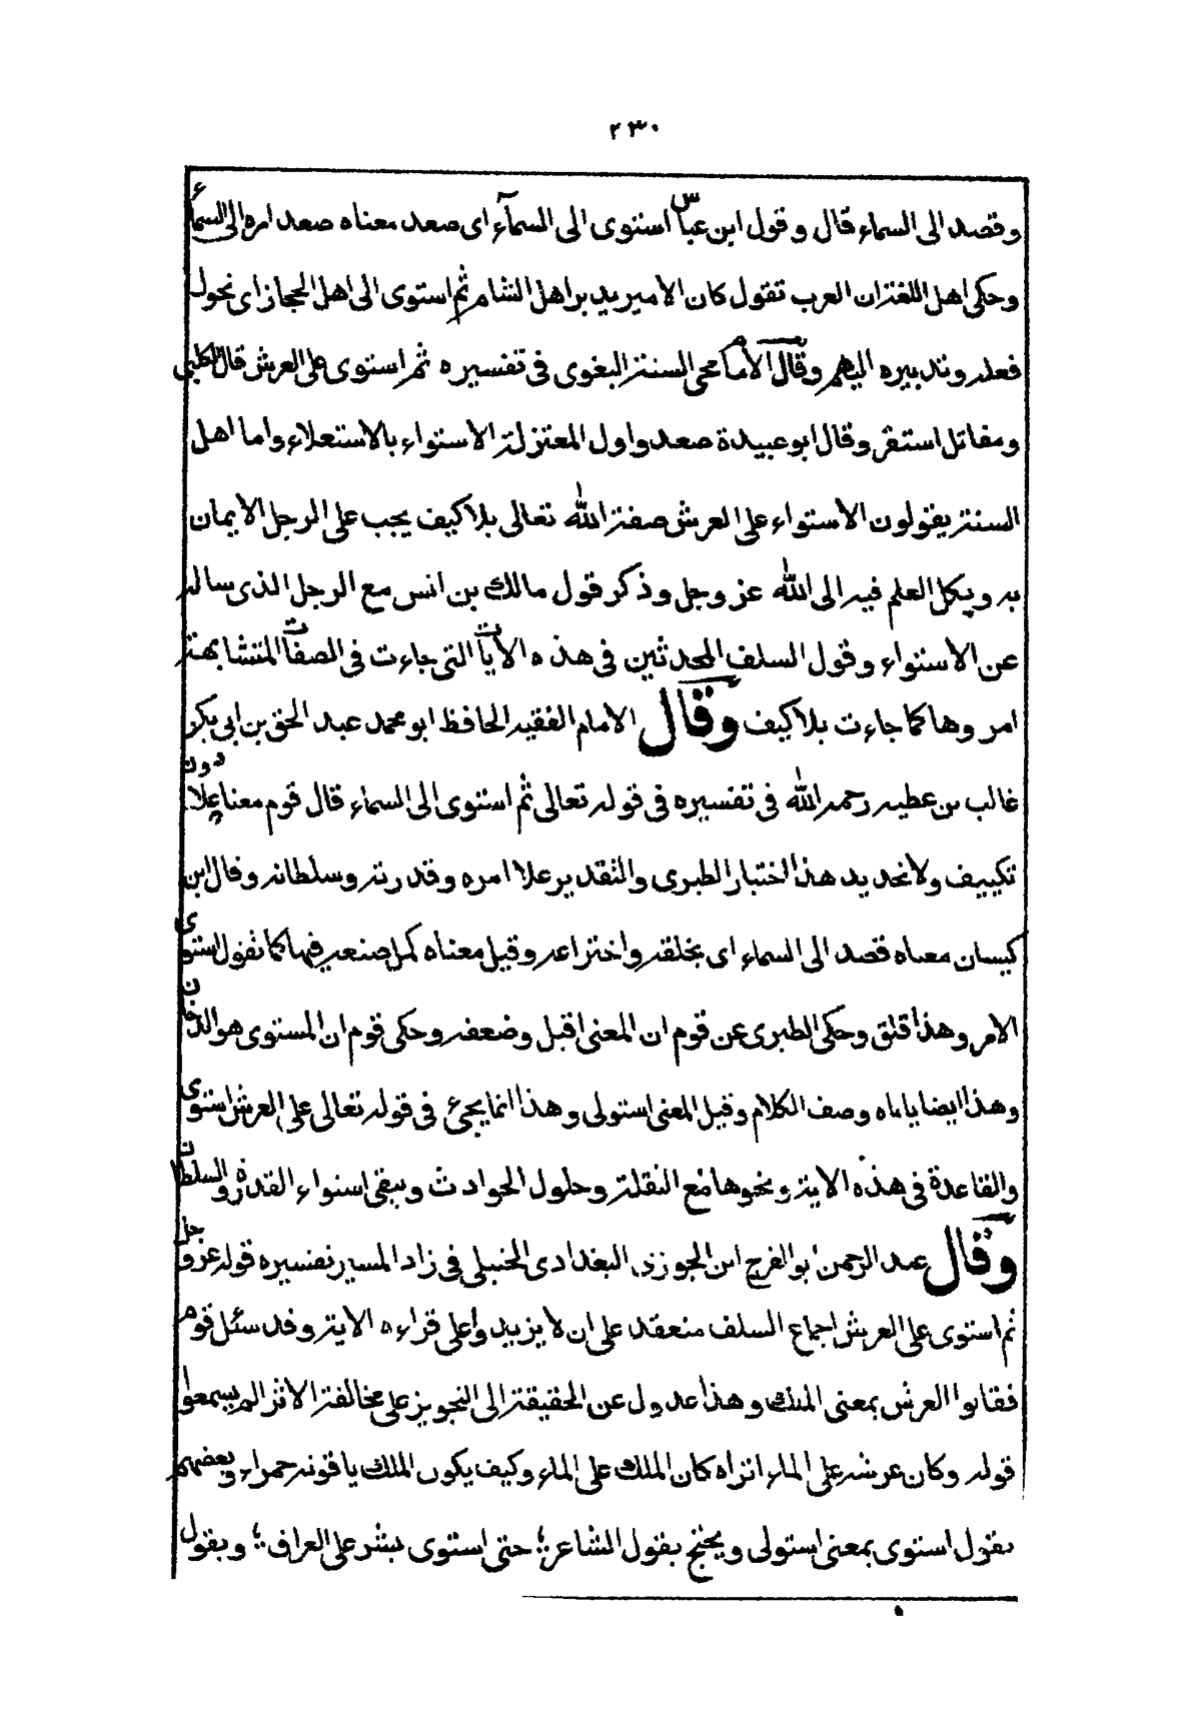 ٢٣٠
وقصد الى السماء قال وقول ابن عباس استوى الى السمآء اى صعد معناه صعد امره الى السماء
وحكى اهل اللغة ان العرب تقول كان الامير يدبر اهل الشام ثم استوى الى اهل الحجاز اى تحول
فعله وتدبيره اليهم وقال الامام محى السنة البغوى فى تفسيره ثم استوى على العرش قال الكلبى
ومقاتل استقر وقال ابو عبيدة صعد واول المعتزلة الاستواء بالاستعلاء واما اهل
السنة يقولون الاستواء على العرش صفة الله تعالى بلا كيف يجب على الرجل الايمان
به ويكل العلم فيه الى الله عز وجل وذكر قول مالك بن انس مع الرجل الذى ساله
عن الاستواء وقول السلف المحدثين فى هذه الايات التى جاءت فى الصفات المتشابهة
امروها كما جاءت بلا كيف وقال الامام الفقيه الحافظ ابو محمد عبد الحق بن ابى بكر
غالب بن عطيه رحمه الله فى تفسيره فى قوله تعالى ثم استوى الى السماء قال قوم معناه علا دون
تكييف ولا تحديد هذا اختبار الطبرى والتقدير علا امره وقدرته وسلطانه وقال ابن
كيسان معناه قصد الى السماء اى بخلقه واختراعه وقيل معناه كمل صنعه فيها كما تقول استوى
الامر وهذا قلق وحكى الطبرى عن قوم ان المعنى اقبل وضعفه وحكى قوم ان المستوى هو الدخان
وهذا ايضا ياباه وصف الكلام وقيل المعنى استولى وهذا انما يجىء فى قوله تعالى على العرش استوى
والقاعدة فى هذه الاية ونحوها منع النقلة وحلول الحوادث ويبقى استواء القدرة والسلطان
وقال عبد الرحمن ابو الفرج ابن الجوزى البغدادى الحنبلى فى زاد المسير تفسيره قوله عز وجل
ثم استوى على العرش اجماع السلف منعقد على ان لا يزيدوا على قراءه الاية وقد سئل قوم
فقالوا العرش بمعنى الملك وهذا عدول عن الحقيقة الى التجويز على مخالفة الاثر الم يسمعوا
قوله وكان عرشه على الماء اتراه كان الملك على الماء وكيف يكون الملك ياقوته حمراء وبعضهم
يقول استوى بمعنى استولى ويحتج بقول الشاعر؛ حتى استوى بشر على العراق؛ وبقول